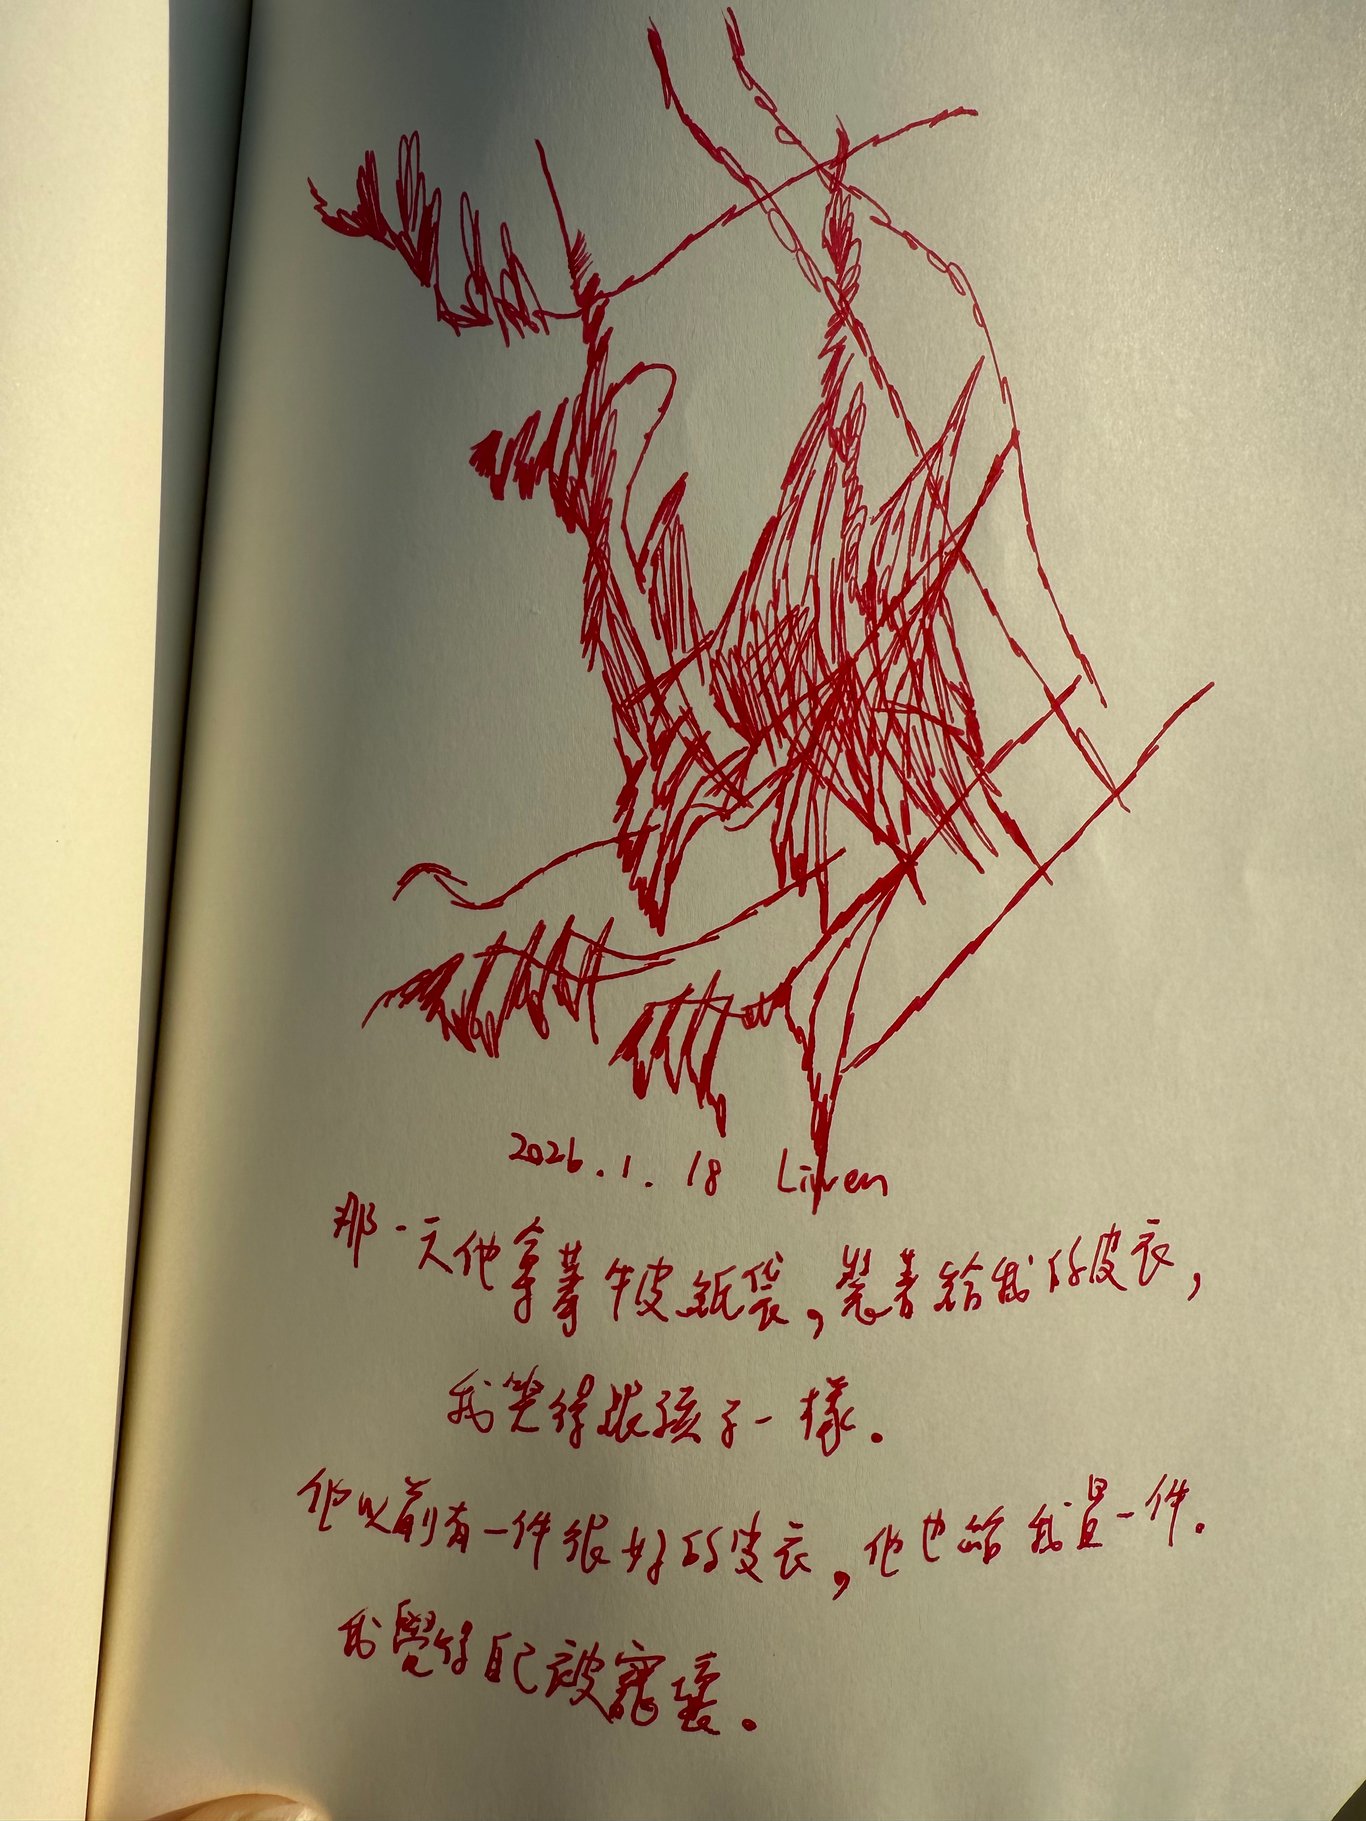 2026.1.18 Liwen
那一天他拿著牛皮紙袋,裝著給我的皮衣,
我笑得跟孩子一樣.
他以前有一件很好的皮衣,他也給我買一件.
我覺得自己被寵壞.